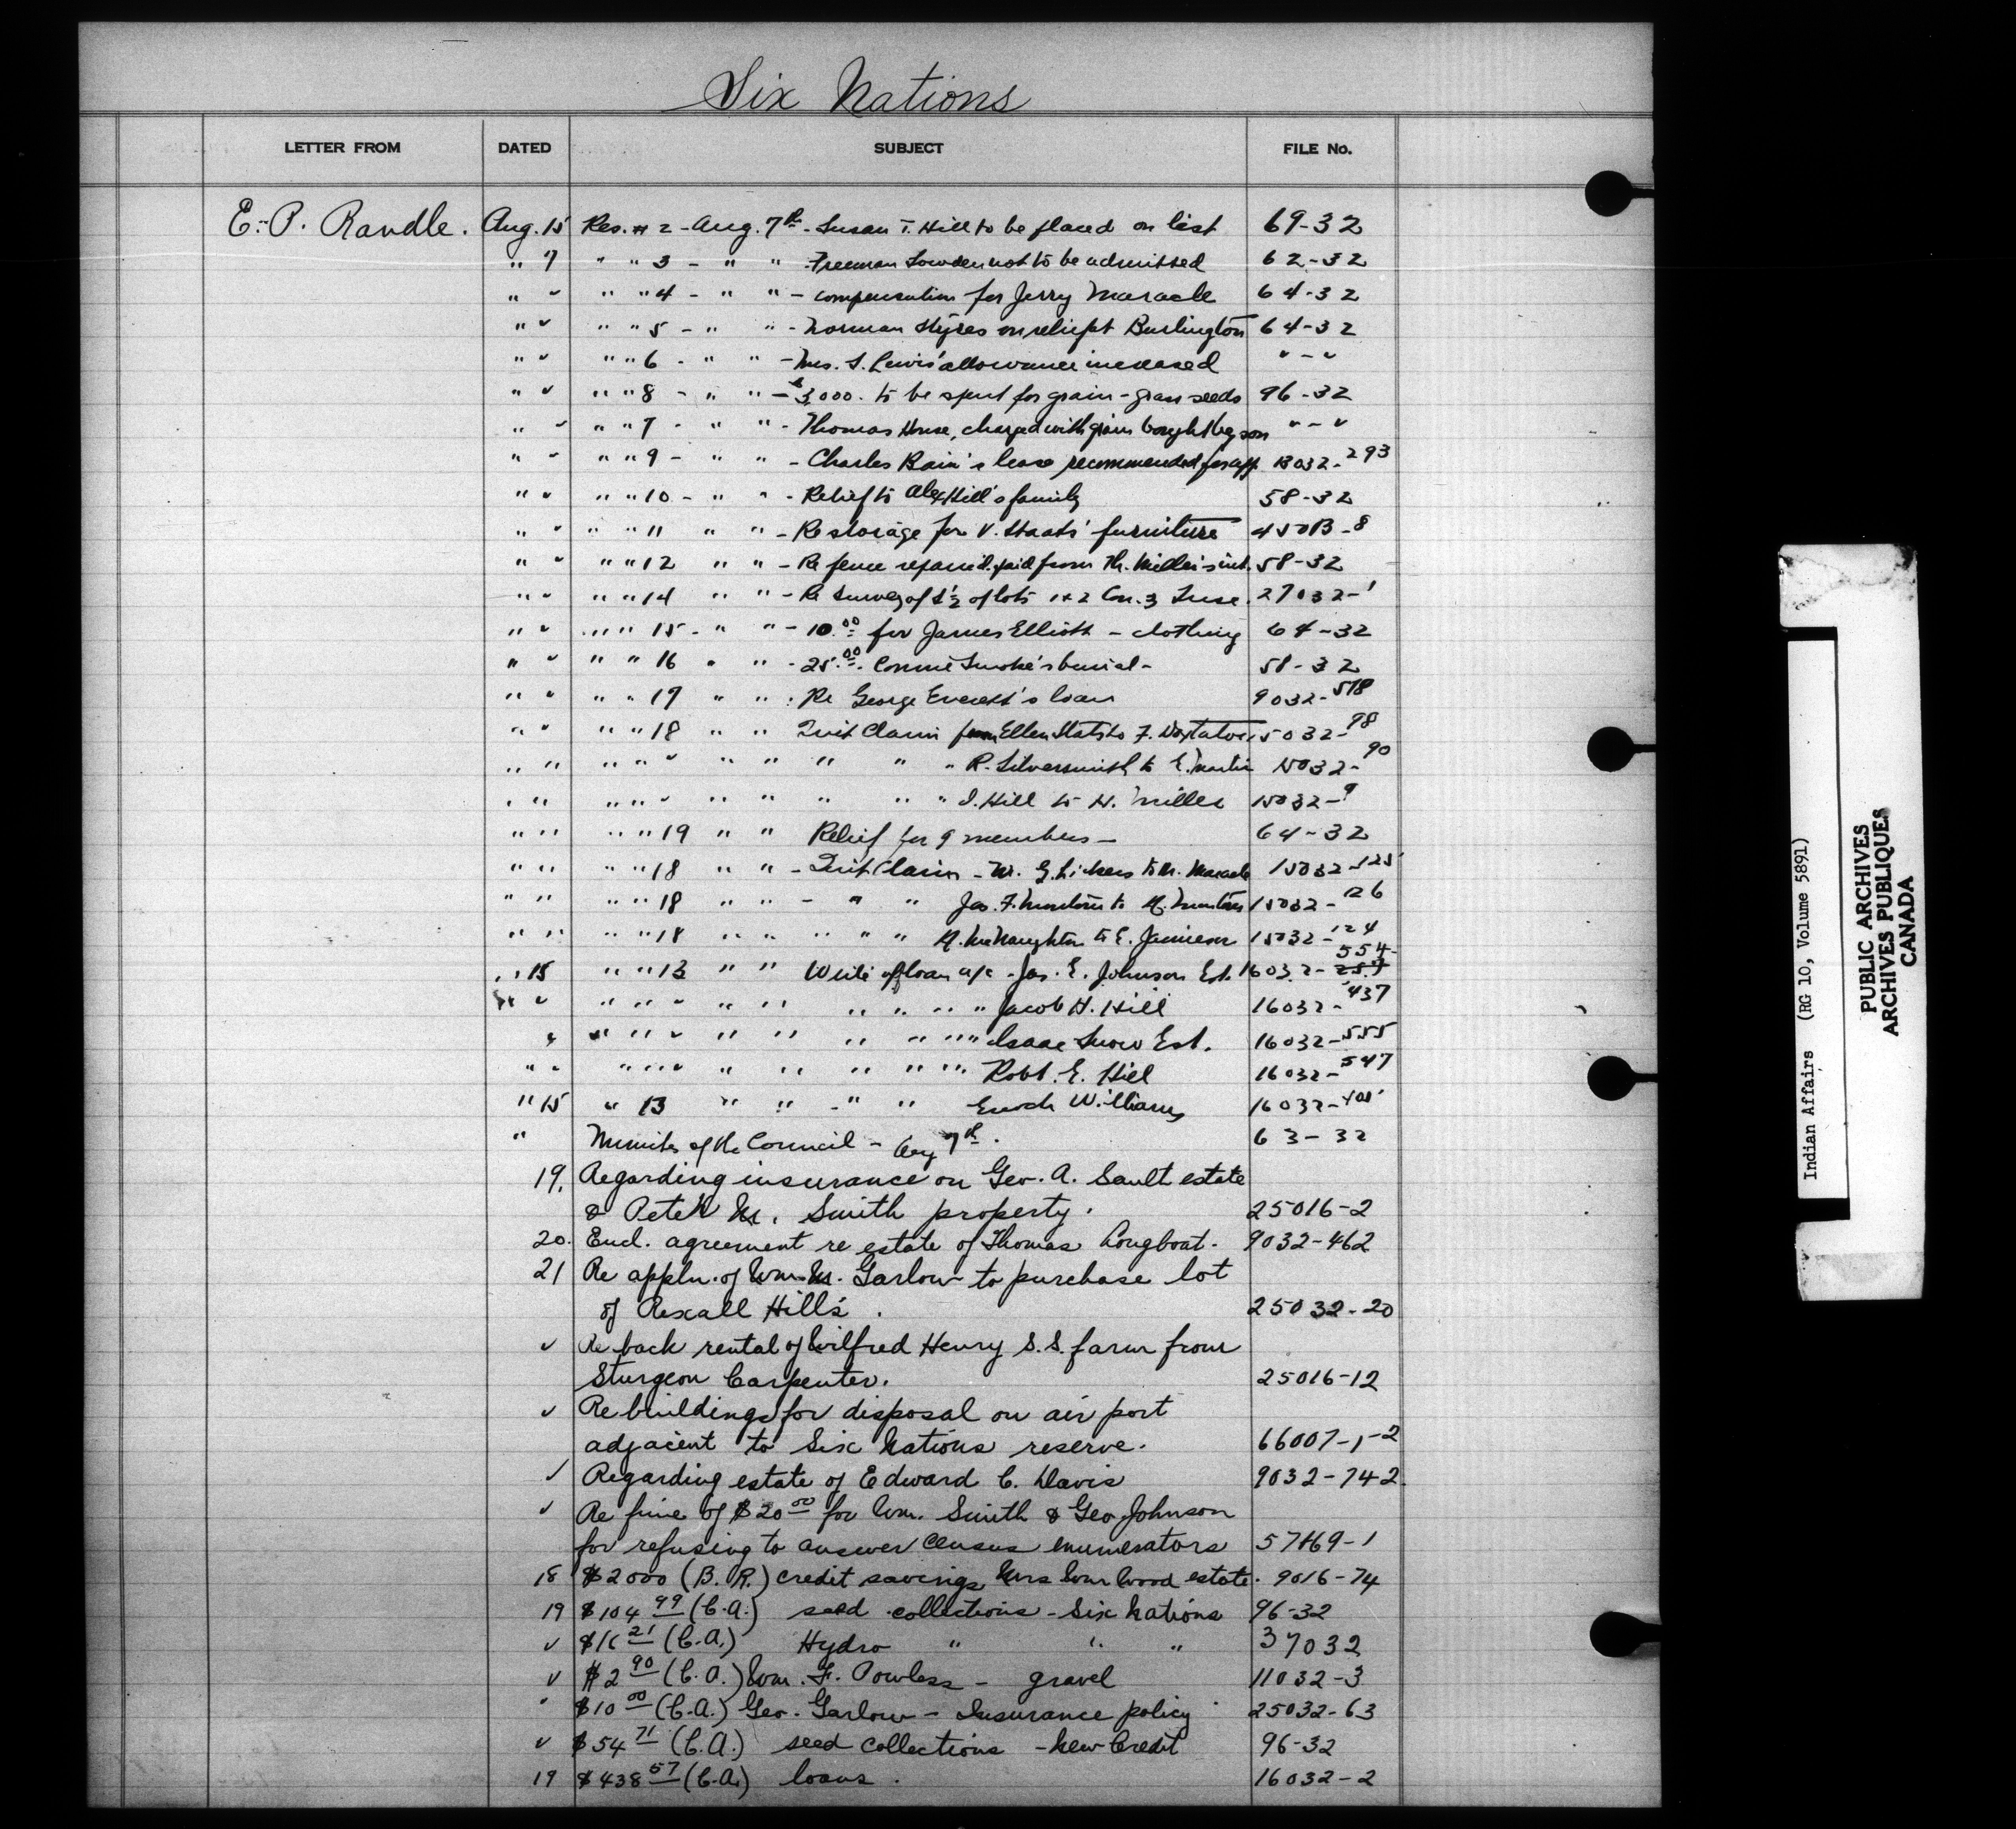 Six Nations
LETTER FROM DATED SUBJECT FILE No.
E. P. Randle. Aug. 15 Res. # 2 - Aug. 7th - Susan T. Hill to be placed on list 69-32
" 7 " " 3 - " " - Freeman Lowden not to be admitted 62-32
" " " " 4 - " " - compensation for Jerry Maracle 64-32
" " " " 5 - " " - Norman Styres on relief at Burlington 64-32
" " " " 6 - " " - Mrs. S. Lewis' allowance increased " - "
" " " " 8 - " " - $3,000. to be spent for grain - grass seeds 96-32
" " " " 7 - " " - Thomas House, charged with grain bought by son " - "
" " " " 9 - " " - Charles Bain's lease recommended for app. 13032-293
" " " " 10 - " " - Relief to Alex Hill's family 58-32
" " " " 11 " " - Re storage for V. Staats' furniture 450B-8
" " " " 12 " " - Re fence repair & paid from Miller's int. 58-32
" " " " 14 " " - Re Survey of S½ of lots 1 & 2 Con. 3 Tusc. 27032-1
" " " " 15 - " " - 10.00 for James Elliott - clothing 64-32
" " " " 16 " " - 25.00. Connie Smoke's burial - 58-32
" " " " 17 " " : Re George Everett's loan 9032-518
" " " " 18 " " Quit Claim from Ellen Stats to F. Doxtator 15032-98
" " " " " " " " " " R. Silversmith to E. Martin 15032-90
" " " " " " " " " " I. Hill to H. Miller 15032-9
" " " " 19 " " Relief for 9 members - 64-32
" " " " 18 " " - Quit Claim - W. G. Lickers to M. Maracle 15032-125
" " " " 18 " " - " " Jas. F. Monture to M. Monture 15032-126
" " " " 18 " " " " " McNaughton to E. Jamieson 15032-124
" 15 " " 13 " " Write off loan a/c - Jas. E. Johnson Est. 16032-554
" " " " " " " " " " " Jacob H. Hill 16032-437
" " " " " " " " " " Isaac Snow Est. 16032-555
" " " " " " " " " " " Robt. E. Hill 16032-547
" 15 " 13 " " " " Enoch Williams 16032-405
" Minutes of the Council - Aug 7th. 63-32
19. Regarding insurance on Geo. A. Sault estate
& Peter M. Smith property. 25016-2
20. Encl. agreement re estate of Thomas Longboat. 9032-462
21 Re appln. of Wm. M. Garlow to purchase lot
of Rexall Hill's. 25032-20
" Re back rental of Wilfred Henry S.S. farm from
Sturgeon Carpenter. 25016-12
" Re buildings for disposal on air port
adjacent to Six Nations reserve. 66007-1-2
" Regarding estate of Edward C. Davis 9032-742.
" Re fine of $20 00 for Wm. Smith & Geo. Johnson
for refusing to answer Census enumerators 57469-1
18 $2000 (B.R.) credit savings Mrs Wm Wood estate. 9016-74
19 $104 99 (C.A.) seed collections - Six Nations 96-32
" $16 21 (C.A.) Hydro " " " 37032
" $2 90 (C.A.) Wm. F. Powless - gravel 11032-3
" $10 00 (C.A.) Geo. Garlow - Insurance policy 25032-63
" $54 71 (C.A.) seed collections - New Credit 96-32
19 $438 57 (C.A.) loans. 16032-2
Indian Affairs (RG 10, Volume 5891)
PUBLIC ARCHIVES
ARCHIVES PUBLIQUES
CANADA